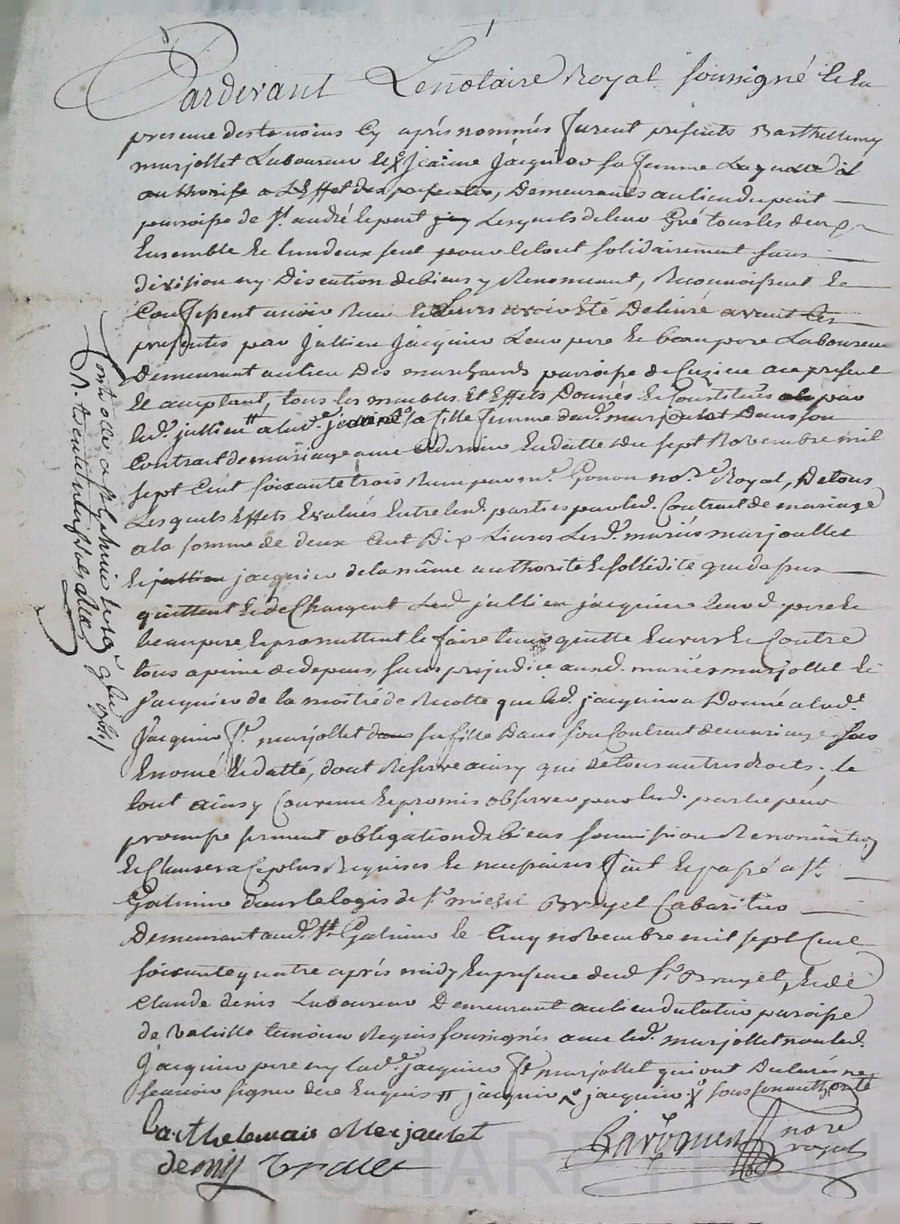 Pardevant Lenotaire Royal soussigné et en
presence des temoins cy apres nommés furent presents Barthellemy
marjollet Laboureur et jeanne jacquier sa femme Laquelle il
authorise a L'Effet des presentes, Demeurants au lieu du pont
paroisse de St. andré le puit Lesquels de leur gré tous les deux
Ensemble Et lun deux seul pour le tout solidairement sans
division ny Discution de biens y Renoncant, Reconnoissent Et
Confessent avoir Receu et Leurs avoir Eté Delivré avant Les
presentes par jullien jacquier Leur pere Et beaupere Laboureur
Demeurant au lieu Des marchands paroisse de Cuzieu a ce present
Et acceptant, tous les meubles Et Effets Donnés Et Constitués par
led. jullien a lad. sa fille femme dud. marjollet Dans son
Contrat de mariage avec Ce dernier En datte du sept Novembre mil
sept Cent soixante trois Receu par me. Gonon nore. Royal, De tous
Lesquels Effets Evalués Entre lesd. parties par led. Contrat de mariage
a la somme de deux Cent Dix Livres Lesd. mariés marjollet
Et jacquier de la même authorité Et sollidité que dessus
quittent Et deChargent Led. jullien jacquier Leurd. pere Et
beaupere, Et promettent le faire tenir quitte Envers Et Contre
tous a peine de depens, sans prejudice auxd. mariés marjollet Et
jacquier de la moitié de Recolte que led. jacquier a Donné a lad.
jacquier fe. marjollet sa fille Dans son Contrat de mariage sus
Enoncé Et datté, dont Reserve ainsy que de tous autres droits, Le
tout ainsy Convenu Et promis observer par lesd. parties par
serment obligation de biens soumission Renonciation
Et Clauses a Ce plus Requises Et necessaires fait Et passé a St.
Galmier dans le logis de sr. michel Bruyel Cabaretier
Demeurant aud. St. Galmier le Cinq novembre mil sept Cent
soixante quatre après midy En presence dud. sr. Bruyel, Et de
Claude denis Laboureur Demeurant au lieu paroisse
de Valeille temoins Requis soussignés avec led. marjollet non led.
jacquier pere ny lad. jacquier fe. marjollet qui ont Declarés ne
scavoir signer de ce Enquis jacquier jacquier sous son authorité
Barthelemie Marjaulet
denis
nore
royal
Controllé a St. Galmier le